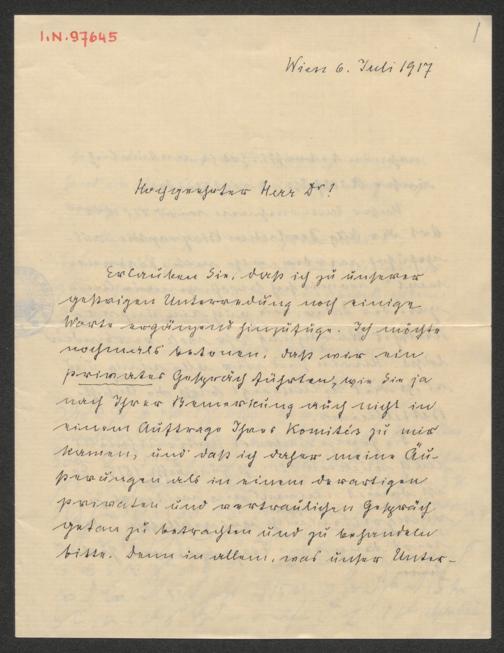 I.N. 97645
1
Wien 6. Juli 1917
Hochgeehrter Herr Dr!
Erlauben Sie, daß ich zu unserer
gestrigen Unterredung noch einige
Worte ergänzend hinzufüge. Ich möchte
nochmals betonen, daß wir ein
privates Gespräch führten, wie Sie ja
nach Ihrer Bemerkung auch nicht in
einem Auftrage Ihres Komités zu mir
kamen, und daß ich daher meine Äu-
ßerungen als in einem derartigen
privaten und vertraulichen Gespräch
getan zu betrachten und zu behandeln
bitte. Denn in allem, was unser Unter-